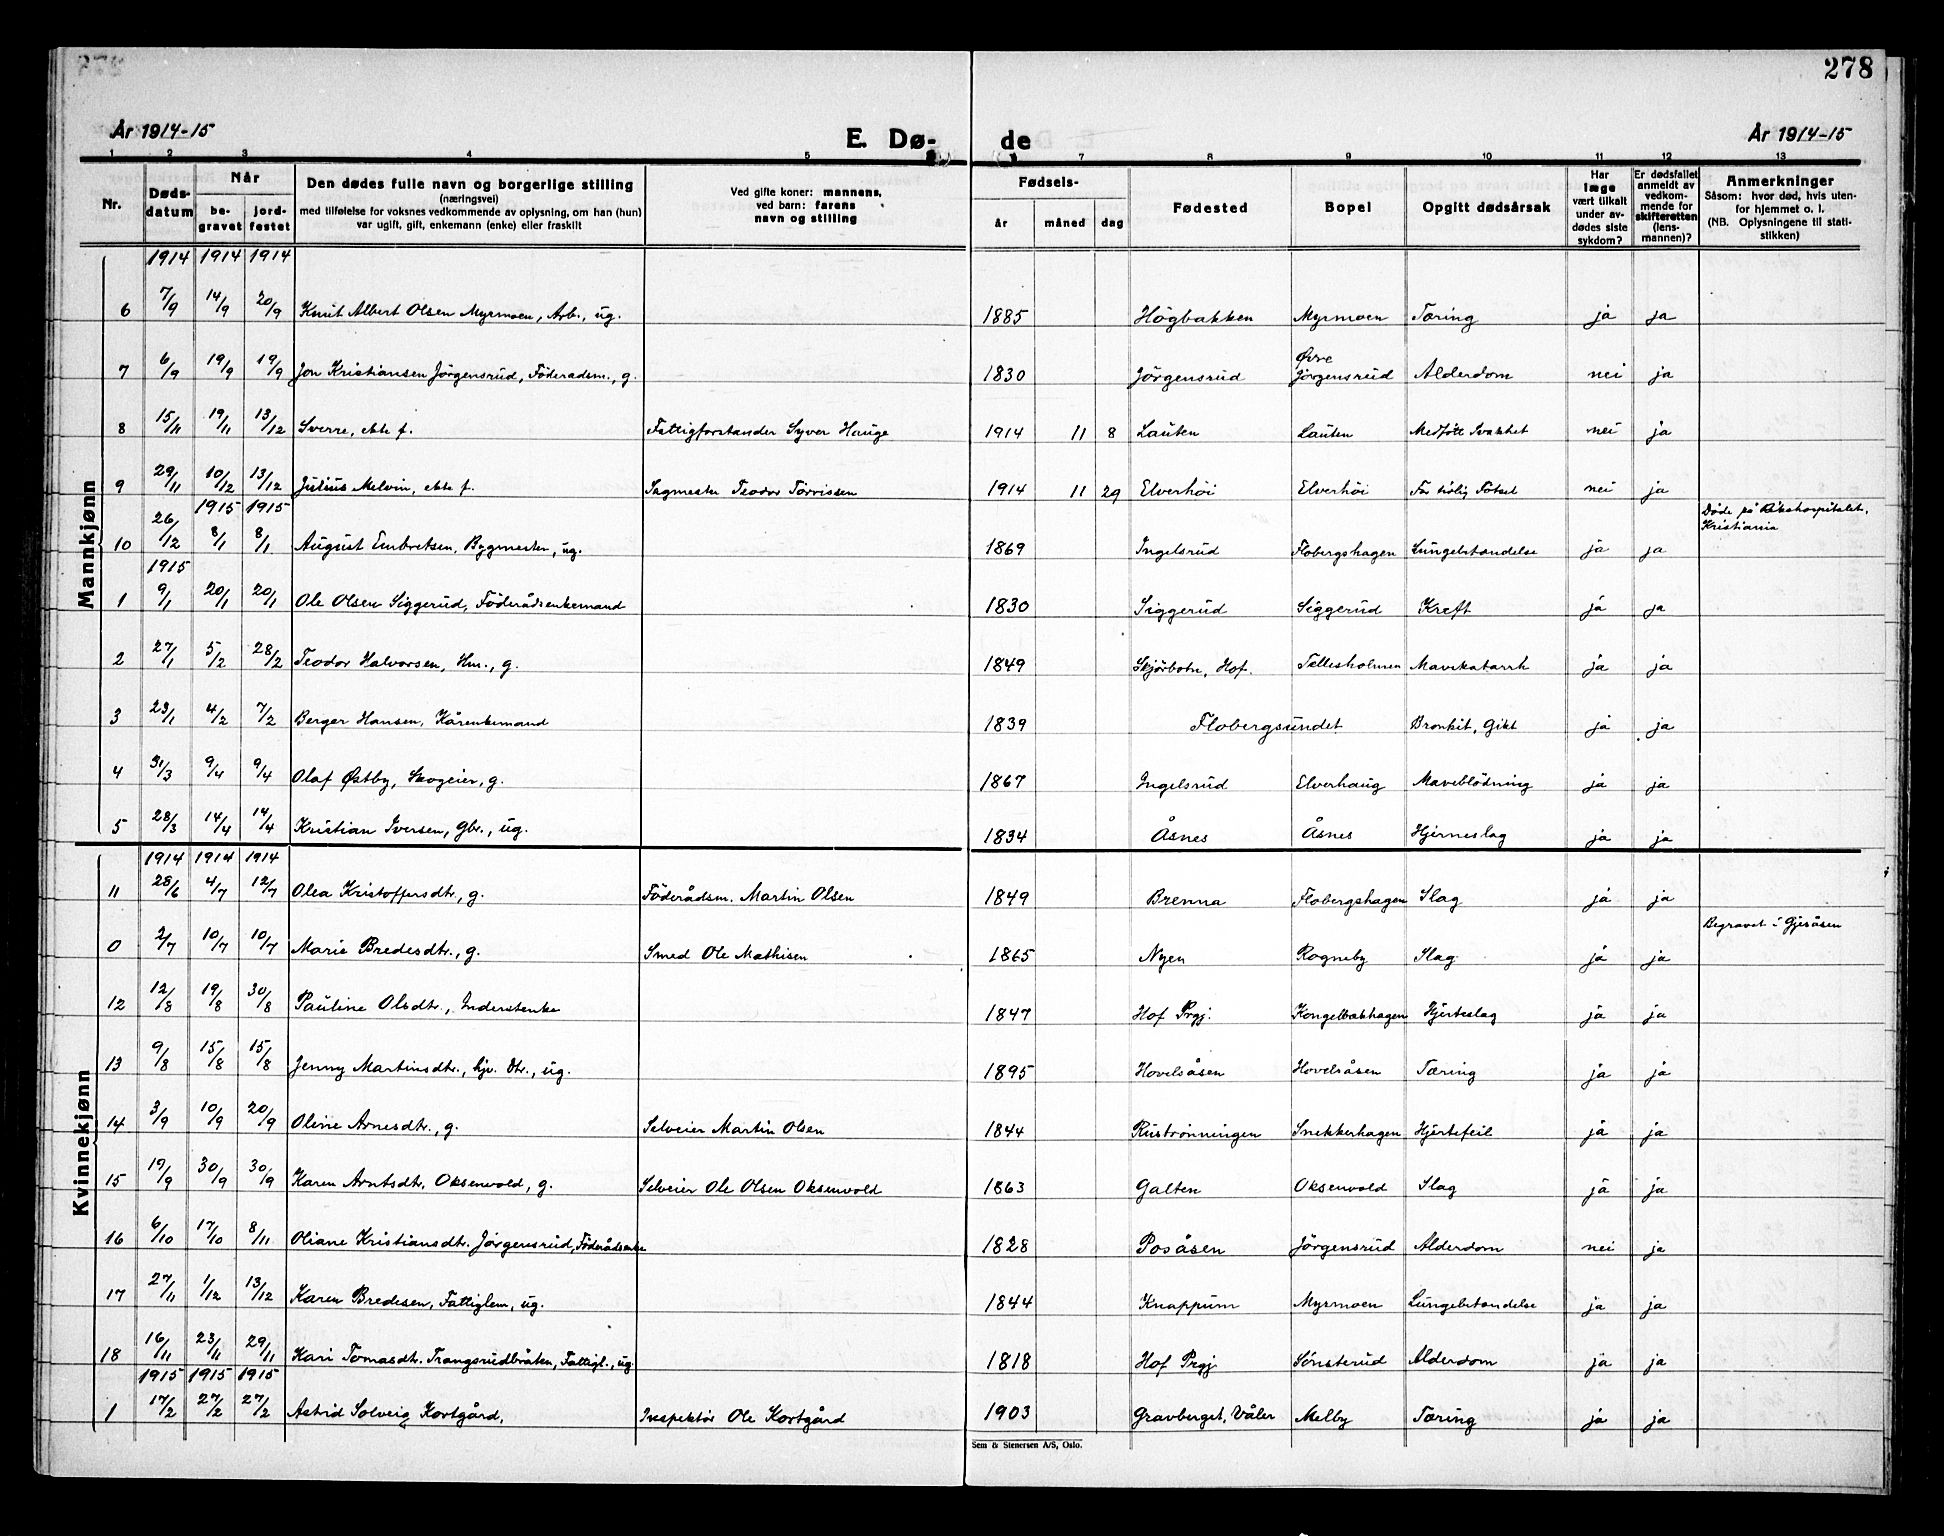 278
År 1914-15
E. Dø-
de
År 1914-15
1 2 3 4 5 7 8 9 10 11 12 13
Nr.
Døds-
datum
Når
be-
gravet
jord-
festet
Den dødes fulle navn og borgerlige stilling
(næringsvei)
med tilføielse for voksnes vedkommende av oplysning, om han (hun)
var ugift, gift, enkemann (enke) eller fraskilt
Ved gifte koner: mannens,
ved barn: farens
navn og stilling
Fødsels-
år måned dag
Fødested
Bopel
Opgitt dødsårsak
Har
læge
vært tilkalt
under av-
dødes siste
sykdom?
Er dødsfallet
anmeldt av
vedkom-
mende for
skifteretten
(lens-
mannen)?
Anmerkninger
Såsom: hvor død, hvis uten-
for hjemmet o. l.
(NB. Oplysningene til stati-
stikken)
Mannkjønn
1914 1914 1914
6 7/9 14/9 20/9 Knut Albert Olsen Myrmoen, Arb., ug. 1885 Högbakken Myrmoen Tæring ja ja
7 6/9 19/9 19/9 Jon Kristiansen Jörgensrud, Föderadsm., g. 1830 Jörgensrud Øvre Jörgensrud Alderdom nei ja
8 15/11 19/11 13/12 Sverre, ekte f. Fattigforstander Syver Hauge 1914 11 8 Lauten Lauten Medfött Svakhet nei ja
9 29/11 10/12 13/12 Julius Melvin, ekte f. Sagmester Teodor Torrissen 1914 11 29 Elverhöi Elverhöi For tidlig Fötsel nei ja
1915 1915
10 26/12 8/1 8/1 August Embretsen, Bygmester, ug. 1869 Ingelsrud Flobergshagen Lungebetændelse ja ja Döde på Rikshospitalet, Kristiania
1915
1 9/1 20/1 20/1 Ole Olsen Siggerud, Föderådsenkemand 1830 Siggerud Siggerud Kreft ja ja
2 27/1 5/2 28/2 Teodor Halvorsen, Hm., g. 1849 Skjörbotn, Hof. Tellesholmen Mavekatarrh ja ja
3 23/1 4/2 7/2 Berger Hansen, Kårenkemand 1839 Flobergsundet Bronkit, Gikt ja ja
4 31/3 9/4 9/4 Olaf Østby, Skogeier, g. 1867 Ingelsrud Elverhaug Maveblödning ja ja
5 28/3 14/4 14/4 Kristian Iversen, Gbr., ug. 1834 Åsnes Åsnes Hjerneslag ja ja
Kvinnekjønn
1914 1914 1914
11 28/6 4/7 12/7 Olea Kristoffersdtr., g. Föderådsm. Martin Olsen 1849 Brenna Flobergshagen Slag ja ja
0 2/7 10/7 10/7 Marie Bredesdtr., g. Smed Ole Mathisen 1865 Nyen Rogneby Slag ja ja Begravet i Gjesåsen
12 12/8 19/8 30/8 Pauline Olsdtr., Inderstenke 1847 Hof Prgj. Kongelbækhagen Hjerteslag ja ja
13 9/8 15/8 15/8 Jenny Martinsdtr., hjv. Dtr., ug. 1895 Hovelsåsen Hovelsåsen Tæring ja ja
14 3/9 10/9 20/9 Oline Arnesdtr., g. Selveier Martin Olsen 1844 Ruströnningen Snekkerhagen Hjertefeil ja ja
15 19/9 30/9 30/9 Karen Arntsdtr. Oksenvold, g. Selveier Ole Olsen Oksenvold 1863 Galten Oksenvold Slag ja ja
16 6/10 17/10 8/11 Oliane Kristiansdtr. Jörgensrud, Föderådsenke 1828 Posåsen Jörgensrud Alderdom nei ja
17 27/11 1/12 13/12 Karen Bredesen, Fattiglem, ug. 1844 Knappum Myrmoen Lungebetændelse ja ja
18 16/11 23/11 29/11 Kari Tomasdtr. Trangsrudbråten, Fattigl., ug. 1818 Hof Prgj. Sönsterud Alderdom ja ja
1915 1915 1915
1 17/2 27/2 27/2 Astrid Solveig Kortgård, Inspektör Ole Kortgård 1903 Gravberget, Våler Melby Tæring ja ja
Sem & Stenersen A/S, Oslo.